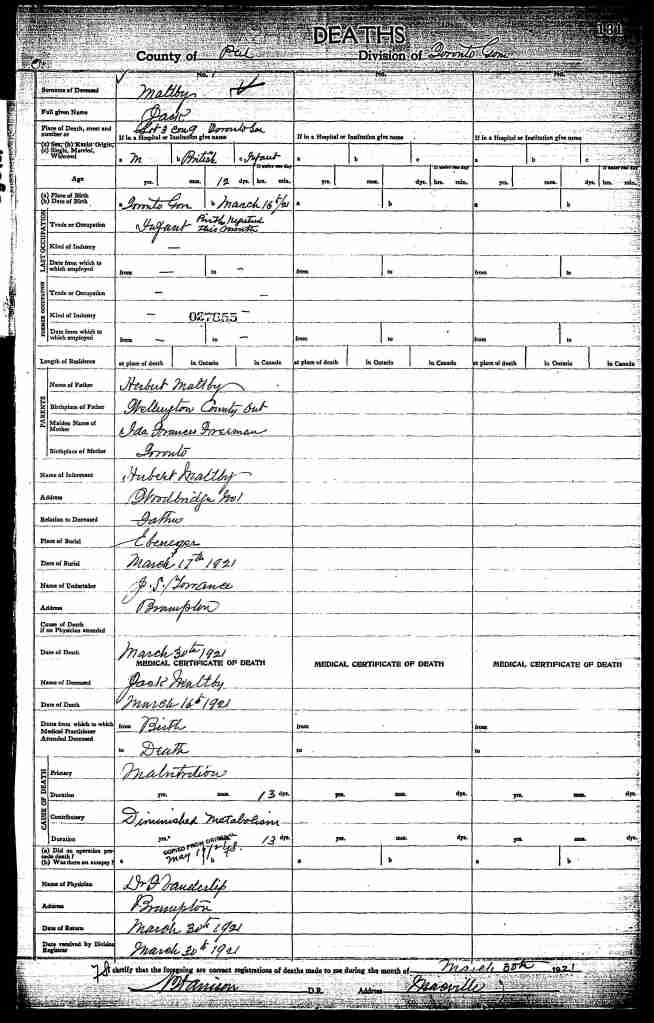 DEATHS
131
County of Peel Division of Toronto Gore
No. 1 No. No.
Surname of Deceased Maltby
Full given Name Jack
Place of Death, street and number or Lot 3 Con 9 Toronto Gore
If in a Hospital or Institution give name If in a Hospital or Institution give name If in a Hospital or Institution give name
(a) Sex; (b) Racial Origin; (c) Single, Married, Widowed a M b British c Infant a b c a b c
Age yrs. mos. 12 dys. hrs. min. yrs. mos. dys. hrs. min. yrs. mos. dys. hrs. min.
If under one day If under one day If under one day
(a) Place of Birth (b) Date of Birth a Toronto Gore b March 16th/21 a b a b
LAST OCCUPATION
Trade or Occupation Infant Birth Reported this month
Kind of Industry —
Date from which to which employed from — to — from to from to
FORMER OCCUPATION
Trade or Occupation – –
Kind of Industry – 027655 –
Date from which to which employed from — to — from to from to
Length of Residence at place of death in Ontario in Canada at place of death in Ontario in Canada at place of death in Ontario in Canada
PARENTS
Name of Father Herbert Maltby
Birthplace of Father Wellington County Ont
Maiden Name of Mother Ida Frances
Birthplace of Mother Toronto
Name of Informant Herbert Maltby
Address Woodbridge No 1
Relation to Deceased Father
Place of Burial Ebenezer
Date of Burial March 17th 1921
Name of Undertaker J. S. Torrance
Address Brampton
Cause of Death if no Physician attended
Date of Death March 30th 1921
MEDICAL CERTIFICATE OF DEATH MEDICAL CERTIFICATE OF DEATH MEDICAL CERTIFICATE OF DEATH
Name of Deceased Jack Maltby
Date of Death March 16th 1921
Dates from which to which Medical Practitioner Attended Deceased from Birth from from
to Death to to
CAUSE OF DEATH
Primary Malnutrition
Duration yrs. mos. 13 dys. yrs. mos. dys. yrs. mos. dys.
Contributory Diminished Metabolism
Duration yrs. 13 dys. yrs. mos. dys. yrs. mos. dys.
COPIED FROM ORIGINAL
(a) Did an operation precede death? (b) Was there an autopsy? a May b a b a b
Name of Physician Dr Vanderlip
Address Brampton
Date of Return March 30th 1921
Date received by Division Registrar March 30th 1921
I certify that the foregoing are correct registrations of deaths made to me during the month of March 30th 1921
D.R. Address Macville